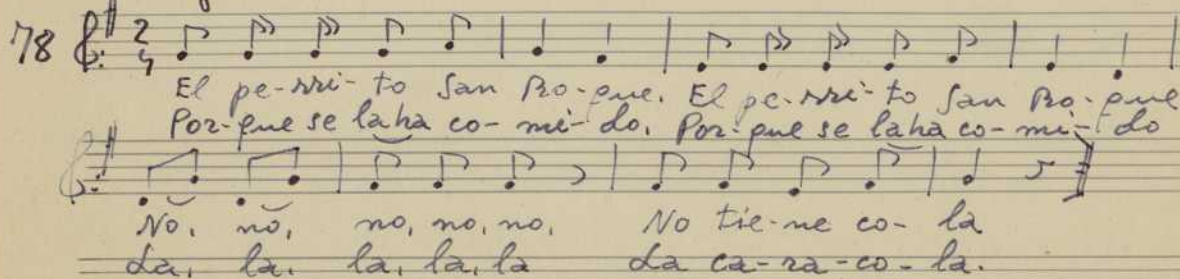 78 2
4
El pe-rri-to San Ro-que. El pe-rri-to San Ro-que
Por-que se la ha co-mi-do. Por-que se la ha co-mi-do
No, no, no, no, no, No tie-ne co-la
La, la, la, la, la La ca-ra-co-la.